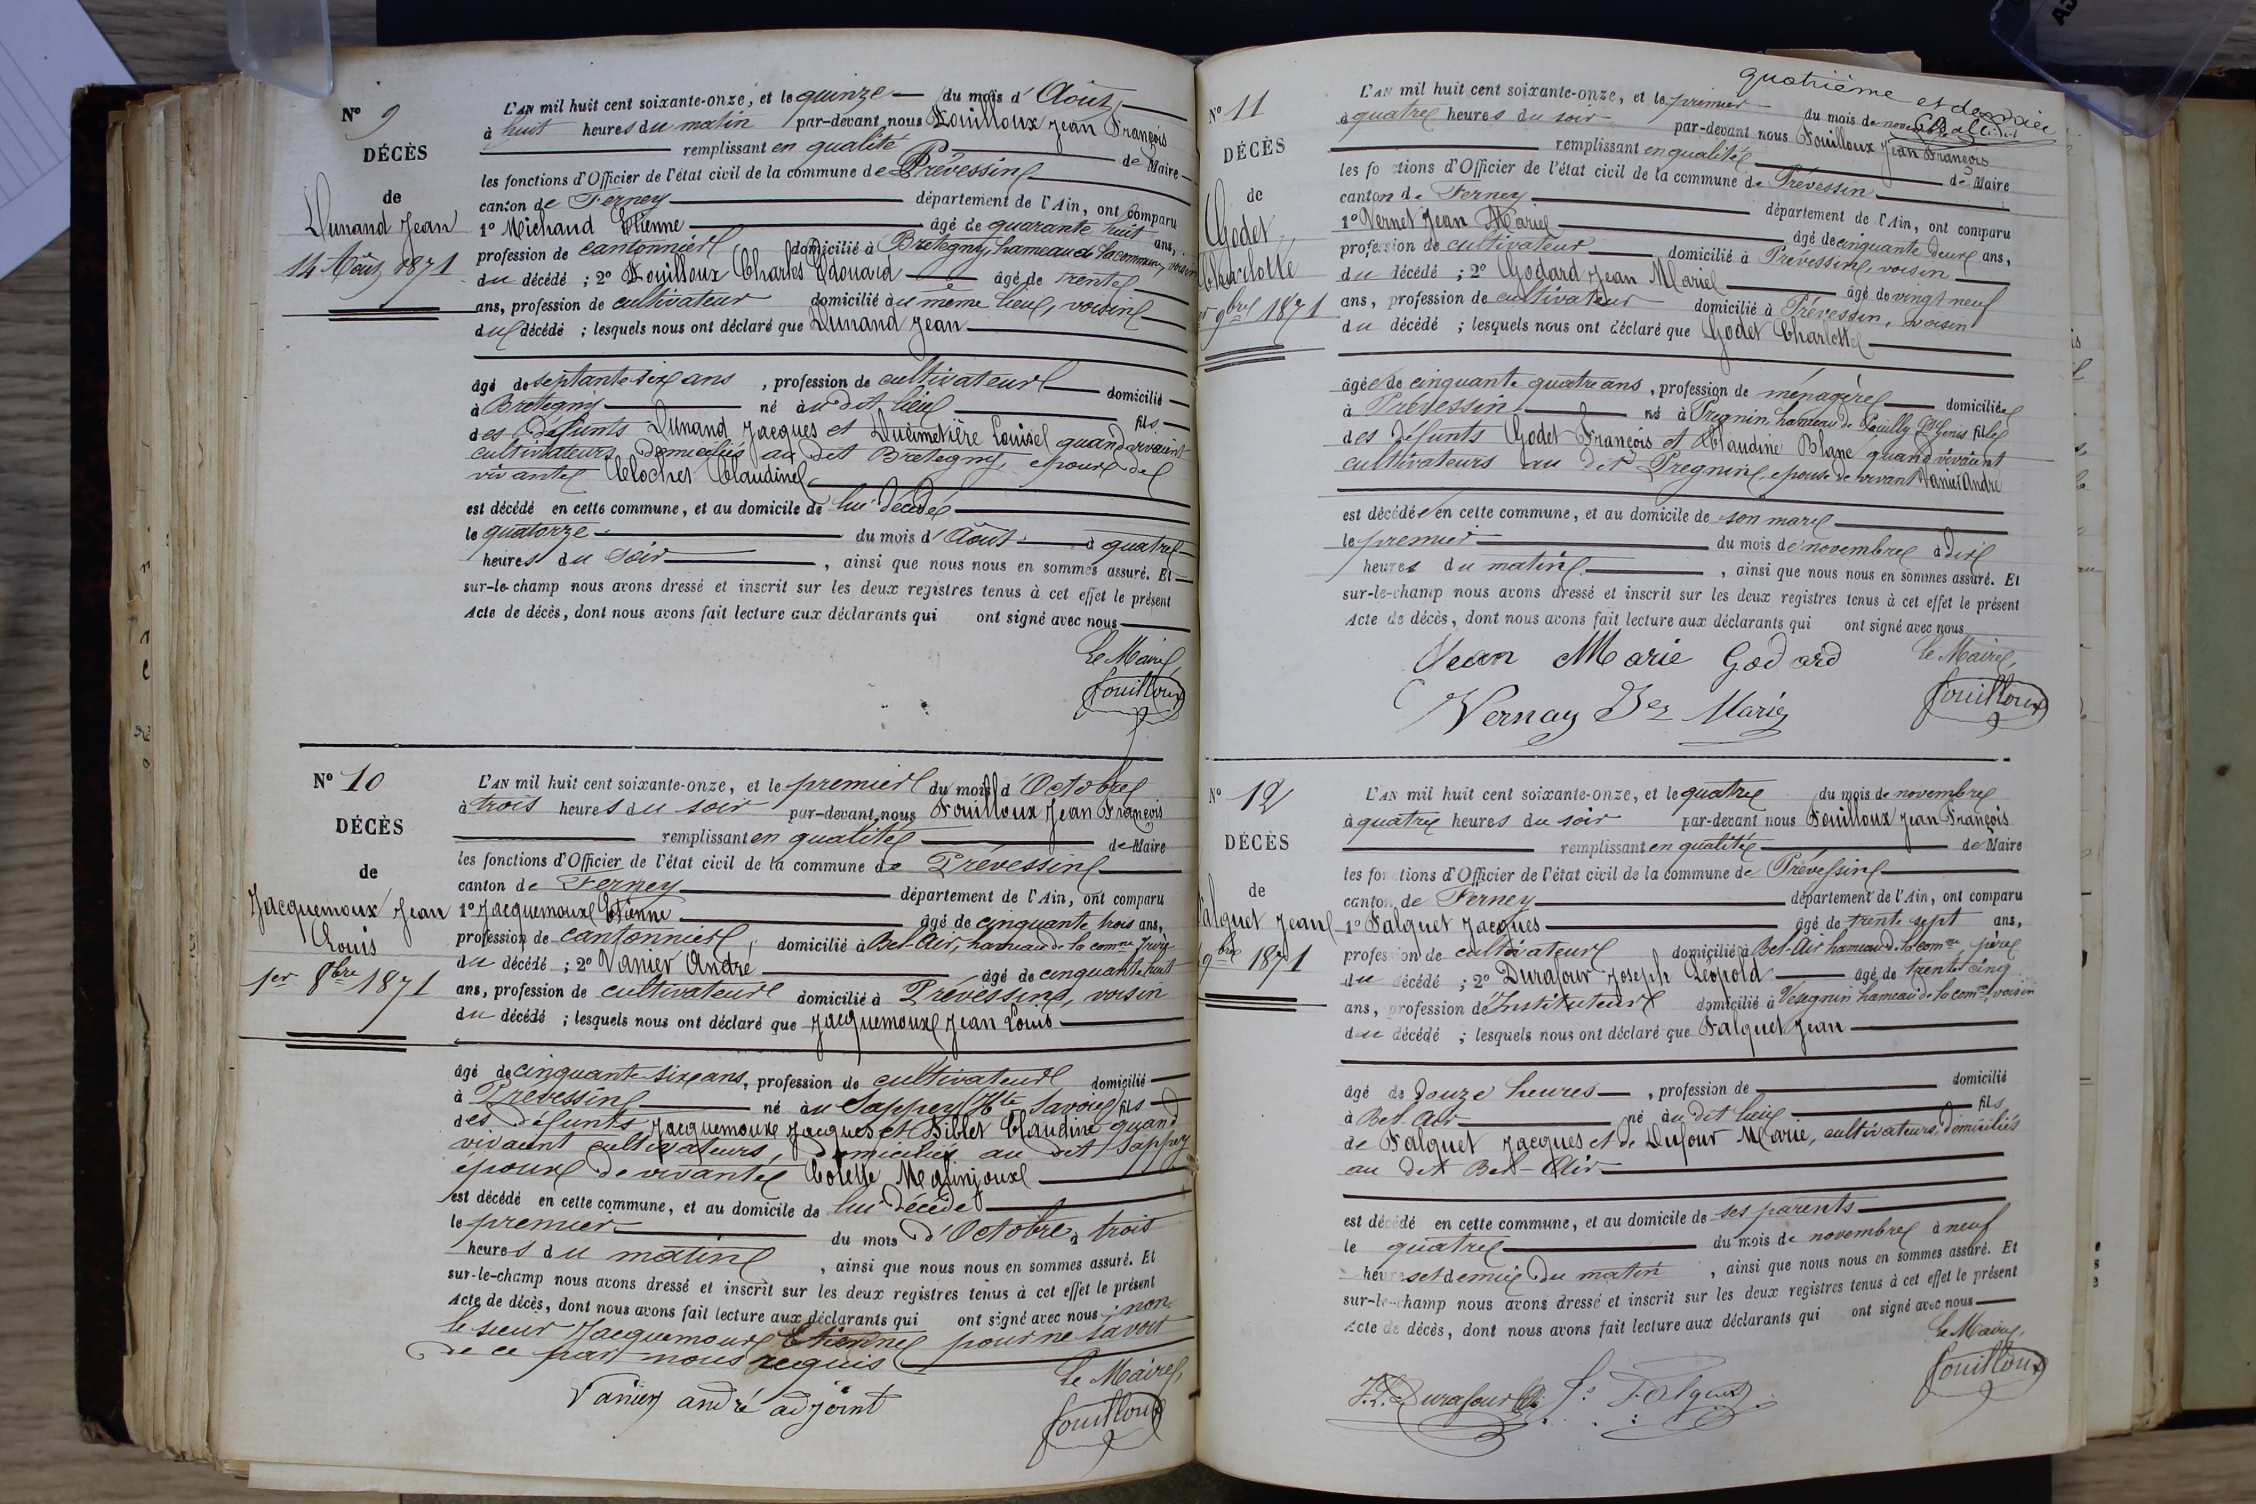 Nº 9
DÉCÈS
de
Dunand Jean
14 Août 1871
L'AN mil huit cent soixante-onze, et le quinze du mois d'Août
à huit heures du matin par-devant nous Fouilloux Jean François
remplissant en qualité de Maire
les fonctions d'Officier de l'état civil de la commune de Prévessin
canton de Ferney département de l'Ain, ont comparu
1º Michaud Etienne âgé de quarante huit ans,
profession de cantonnier domicilié à Bretegny, hameau de la commune, voisin
du décédé ; 2º Fouilloux Charles Edouard âgé de trente
ans, profession de cultivateur domicilié au même lieu, voisin
du décédé ; lesquels nous ont déclaré que Dunand Jean
âgé de septante six ans, profession de cultivateur domicilié
à Bretegny né au dit lieu fils
des défunts Dunand Jacques et Ducimetière Louise quand vivaient
cultivateurs domiciliés au dit Bretegny, époux de
vivante Clochet Claudine
est décédé en cette commune, et au domicile de lui décédé
le quatorze du mois d'Août à quatre
heures du soir, ainsi que nous nous en sommes assuré. Et
sur-le-champ nous avons dressé et inscrit sur les deux registres tenus à cet effet le présent
Acte de décès, dont nous avons fait lecture aux déclarants qui ont signé avec nous
Le Maire,
Fouilloux
Nº 10
DÉCÈS
de
Jacquemoux Jean
Louis
1er 8bre 1871
L'AN mil huit cent soixante-onze, et le premier du mois d'Octobre
à trois heures du soir par-devant nous Fouilloux Jean François
remplissant en qualité de Maire
les fonctions d'Officier de l'état civil de la commune de Prévessin
canton de Ferney département de l'Ain, ont comparu
1º Jacquemoux Etienne âgé de cinquante trois ans,
profession de cantonnier, domicilié à Bel-Air, hameau de la comne frère
du décédé ; 2º Vanier André âgé de cinquante huit
ans, profession de cultivateur domicilié à Prévessin, voisin
du décédé ; lesquels nous ont déclaré que Jacquemoux Jean Louis
âgé de cinquante six ans, profession de cultivateur domicilié
à Prévessin né au Sappey (Hte Savoie) fils
des défunts Jacquemoux Jacques et Siblet Claudine quand
vivaient cultivateurs, domiciliés au dit Sappey
époux de vivante Colette Malinjoux
est décédé en cette commune, et au domicile de lui décédé
le premier du mois d'Octobre à trois
heures du matin, ainsi que nous nous en sommes assuré. Et
sur-le-champ nous avons dressé et inscrit sur les deux registres tenus à cet effet le présent
Acte de décès, dont nous avons fait lecture aux déclarants qui ont signé avec nous non
le sieur Jacquemoux Etienne pour ne savoir
de ce par nous requis
Le Maire,
Vanier andré adjoint
Fouilloux
quatrième et dernier
Nº 11
DÉCÈS
de
Godet
Charlotte
9bre 1871
L'AN mil huit cent soixante-onze, et le premier du mois de novembre
à quatre heures du soir par-devant nous Fouilloux Jean François
remplissant en qualité de Maire
les fonctions d'Officier de l'état civil de la commune de Prévessin
canton de Ferney département de l'Ain, ont comparu
1º Vernet Jean Marie âgé de cinquante deux ans,
profession de cultivateur domicilié à Prévessin, voisin
du décédé ; 2º Godard Jean Marie âgé de vingt neuf
ans, profession de cultivateur domicilié à Prévessin, voisin
du décédé ; lesquels nous ont déclaré que Godet Charlotte
âgée de cinquante quatre ans, profession de ménagère domiciliée
à Prévessin né à Pregnin, hameau de Pouilly St Genis fille
des défunts Godet François et Claudine Blanc quand vivaient
cultivateurs au dit Pregnin, épouse de vivant Vanier André
est décédée en cette commune, et au domicile de son mari
le premier du mois de novembre à dix
heures du matin, ainsi que nous nous en sommes assuré. Et
sur-le-champ nous avons dressé et inscrit sur les deux registres tenus à cet effet le présent
Acte de décès, dont nous avons fait lecture aux déclarants qui ont signé avec nous
Jean Marie Godard
Le Maire,
Vernay Jn Marie
Fouilloux
Nº 12
DÉCÈS
de
Falquet Jean
9bre 1871
L'AN mil huit cent soixante-onze, et le quatre du mois de novembre
à quatre heures du soir par-devant nous Fouilloux Jean François
remplissant en qualité de Maire
les fonctions d'Officier de l'état civil de la commune de Prévessin
canton de Ferney département de l'Ain, ont comparu
1º Falquet Jacques âgé de trente sept ans,
profession de cultivateur domicilié à Bel-Air hameau de la comne père
du décédé ; 2º Durafour Joseph Léopold âgé de trente cinq
ans, profession d'Instituteur domicilié à Vesegnin hameau de la comne, voisin
du décédé ; lesquels nous ont déclaré que Falquet Jean
âgé de douze heures, profession de domicilié
à Bel-Air né au dit lieu fils
de Falquet Jacques et de Dufour Marie, cultivateurs domiciliés
au dit Bel-Air
est décédé en cette commune, et au domicile de ses parents
le quatre du mois de novembre à neuf
heures et demie du matin, ainsi que nous nous en sommes assuré. Et
sur-le-champ nous avons dressé et inscrit sur les deux registres tenus à cet effet le présent
Acte de décès, dont nous avons fait lecture aux déclarants qui ont signé avec nous
Le Maire,
J.L. Durafour Falquet
Fouilloux